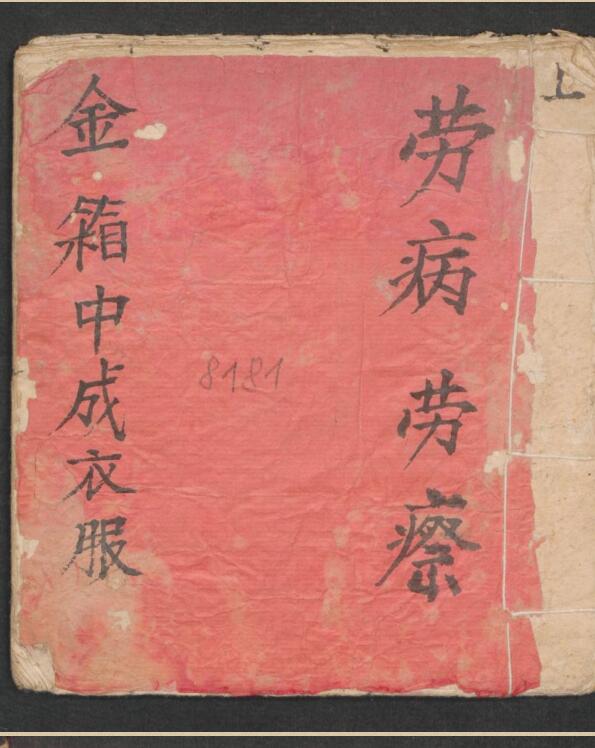 上
劳病 劳瘵
8181
金箱中成衣服